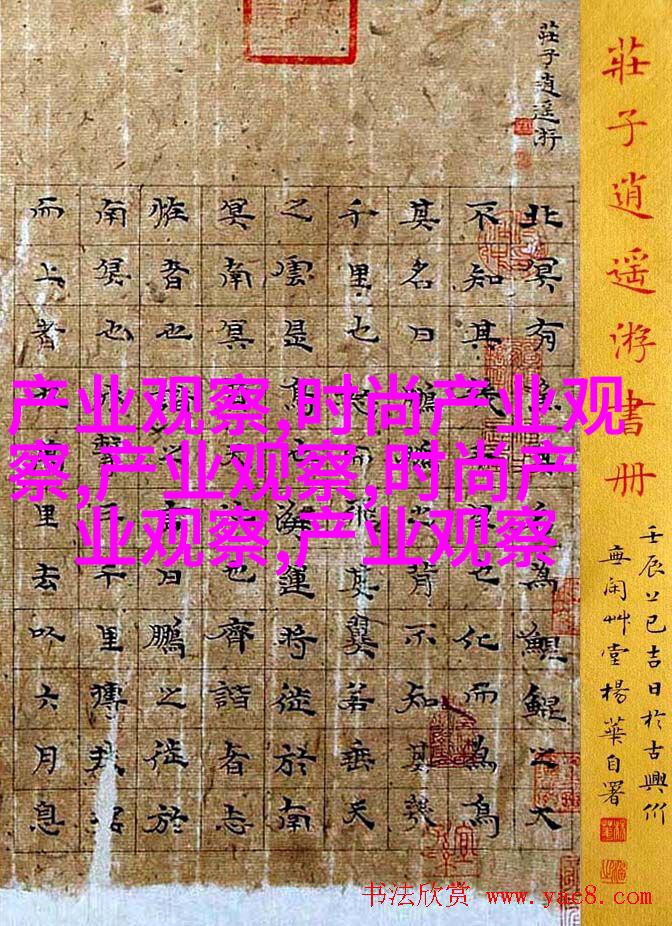 莊子逍遥游書册
壬辰上巳吉日於古興州
闲艸堂楊華自署
莊子逍遥游
北冥有魚其名為鯤鯤之大
不知其幾千里也化而為鳥
其名曰鵬鵬之背不知其幾
千里也怒而飛其翼若垂天
之雲是鳥也海運將徙於南
冥南冥者天池也齊諧者志
怪者也諧之言曰鵬之徙於
南冥也水擊三千里摶扶搖
而上者九萬里去以六月息
产业观察,时尚产业观
察,产业观察,时尚产
业观察,产业观察
书法欣赏 www.yac8.com